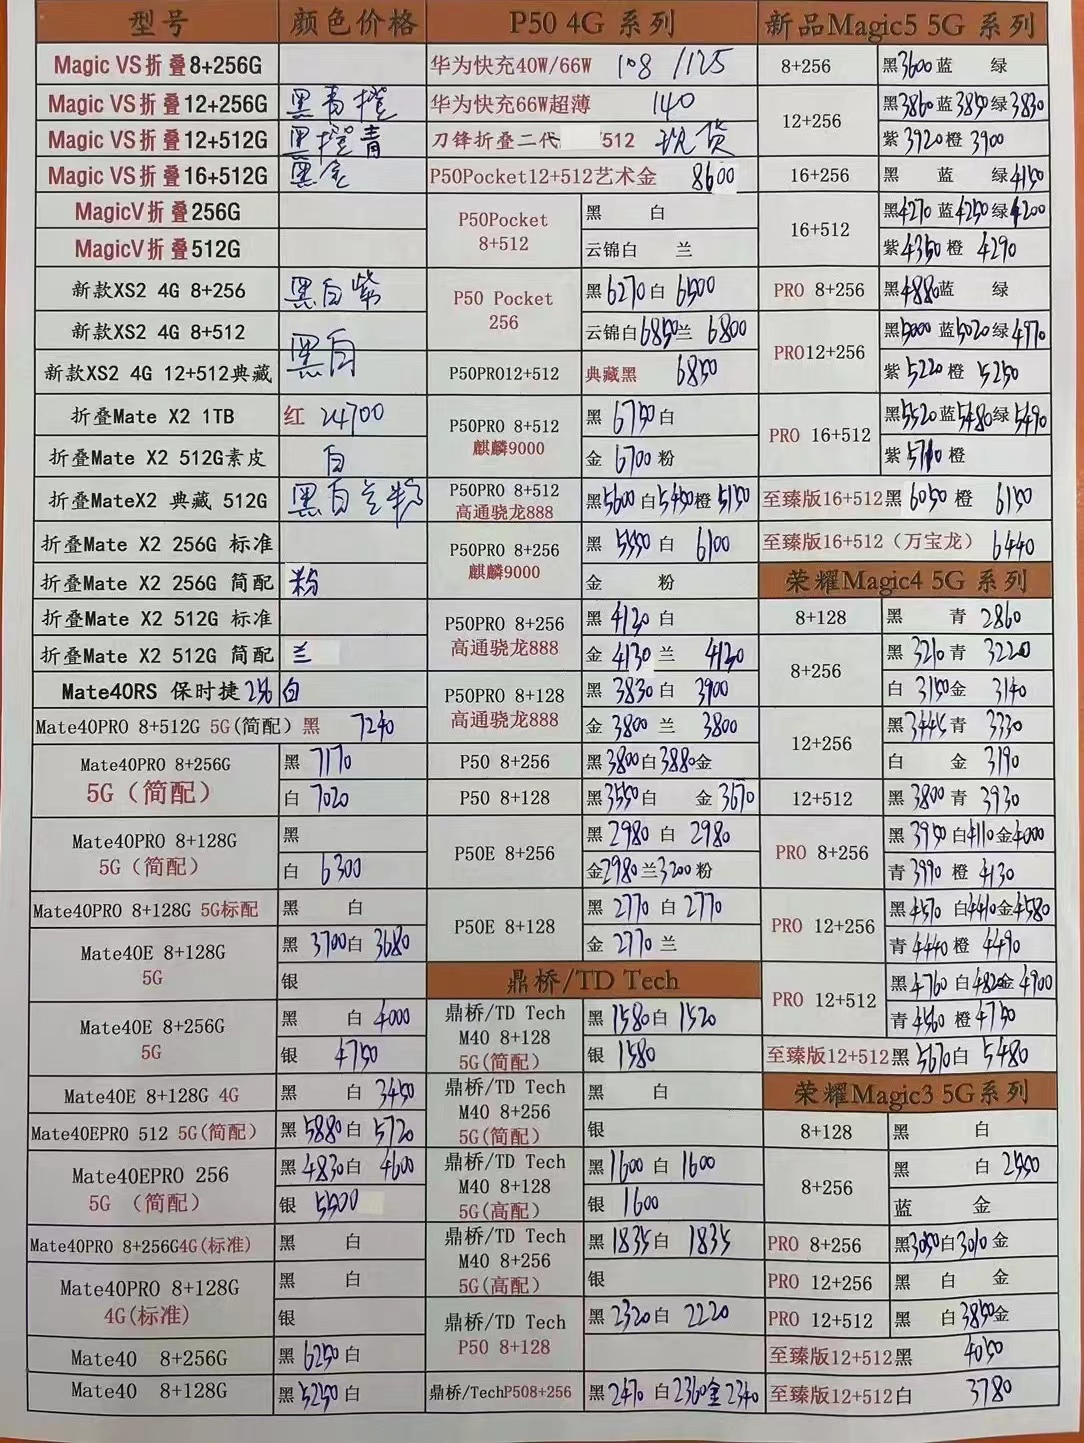 型号 颜色价格 P50 4G 系列 新品Magic5 5G 系列
Magic VS折叠8+256G
Magic VS折叠12+256G 黑青橙
Magic VS折叠12+512G 黑橙青
Magic VS折叠16+512G 黑金
MagicV折叠256G
MagicV折叠512G
新款XS2 4G 8+256 黑白紫
新款XS2 4G 8+512 黑白
新款XS2 4G 12+512典藏
折叠Mate X2 1TB 红 24700
折叠Mate X2 512G素皮 白
折叠MateX2 典藏 512G 黑白兰粉
折叠Mate X2 256G 标准
折叠Mate X2 256G 简配 粉
折叠Mate X2 512G 标准
折叠Mate X2 512G 简配 兰
Mate40RS 保时捷256 白
Mate40PRO 8+512G 5G(简配) 黑 7240
Mate40PRO 8+256G 5G(简配) 黑 7170
白 7020
Mate40PRO 8+128G 5G(简配) 黑
白 6300
Mate40PRO 8+128G 5G标配 黑 白
Mate40E 8+128G 5G 黑 3700白 3680
银
Mate40E 8+256G 5G 黑 白 4000
银 4750
Mate40E 8+128G 4G 黑 白 3450
Mate40EPRO 512 5G(简配) 黑 5880白 5720
Mate40EPRO 256 5G (简配) 黑 4830白 4600
银 5500
Mate40PRO 8+256G4G(标准) 黑 白
Mate40PRO 8+128G 4G(标准) 黑 白
银
Mate40 8+256G 黑 6250白
Mate40 8+128G 黑 5250白
华为快充40W/66W 108 /125
华为快充66W超薄 140
刀锋折叠二代 /512 现货
P50Pocket12+512艺术金 8600
P50Pocket 8+512 黑 白
云锦白 兰
P50 Pocket 256 黑 6270白 6500
云锦白6850兰 6800
P50PRO12+512 典藏黑 6850
P50PRO 8+512 麒麟9000 黑 6750白
金 6700 粉
P50PRO 8+512 高通骁龙888 黑5600 白5450橙 5150
P50PRO 8+256 麒麟9000 黑 5550 白 6100
金 粉
P50PRO 8+256 高通骁龙888 黑 4120 白
金 4130 兰 4120
P50PRO 8+128 高通骁龙888 黑 3830 白 3900
金 3800 兰 3800
P50 8+256 黑3800白3880金
P50 8+128 黑3550白 金 3670
P50E 8+256 黑 2980 白 2980
金2980兰3200粉
P50E 8+128 黑 2770 白 2770
金 2770 兰
鼎桥/TD Tech
鼎桥/TD Tech M40 8+128 5G(简配) 黑 1580白 1520
银 1580
鼎桥/TD Tech M40 8+256 5G(简配) 黑 白
银
鼎桥/TD Tech M40 8+128 5G(高配) 黑 1600 白 1600
银 1600
鼎桥/TD Tech M40 8+256 5G(高配) 黑 1835白 1835
银
鼎桥/TD Tech P50 8+128 黑 2320白 2220
鼎桥/TechP508+256 黑2470 白2360金2340
8+256 黑3600蓝 绿
12+256 黑3860蓝3850绿3830
紫 3920橙 3900
16+256 黑 蓝 绿4150
16+512 黑4270 蓝4250绿4200
紫4350橙 4290
PRO 8+256 黑4880蓝 绿
PRO12+256 黑5000 蓝5020绿4770
紫 5220橙 5250
PRO 16+512 黑5520蓝5480绿5490
紫 橙
至臻版16+512黑 6050 橙 6150
至臻版16+512(万宝龙) 6440
荣耀Magic4 5G 系列
8+128 黑 青 2860
8+256 黑 3210青 3220
白 3150金 3140
12+256 黑3445青 3330
白 金 3190
12+512 黑 3800 青 3930
PRO 8+256 黑 3950白4110金4000
青 3990 橙 4130
PRO 12+256 黑 4570 白4410金4580
青 4440橙 4490
PRO 12+512 黑4760 白4820金 4900
青4560 橙4750
至臻版12+512黑 5670白 5480
荣耀Magic3 5G系列
8+128 黑 白
8+256 黑 白 2550
蓝 金
PRO 8+256 黑3050白3010金
PRO 12+256 黑 白 金
PRO 12+512 黑 白3850金
至臻版12+512黑 4050
至臻版12+512白 3780